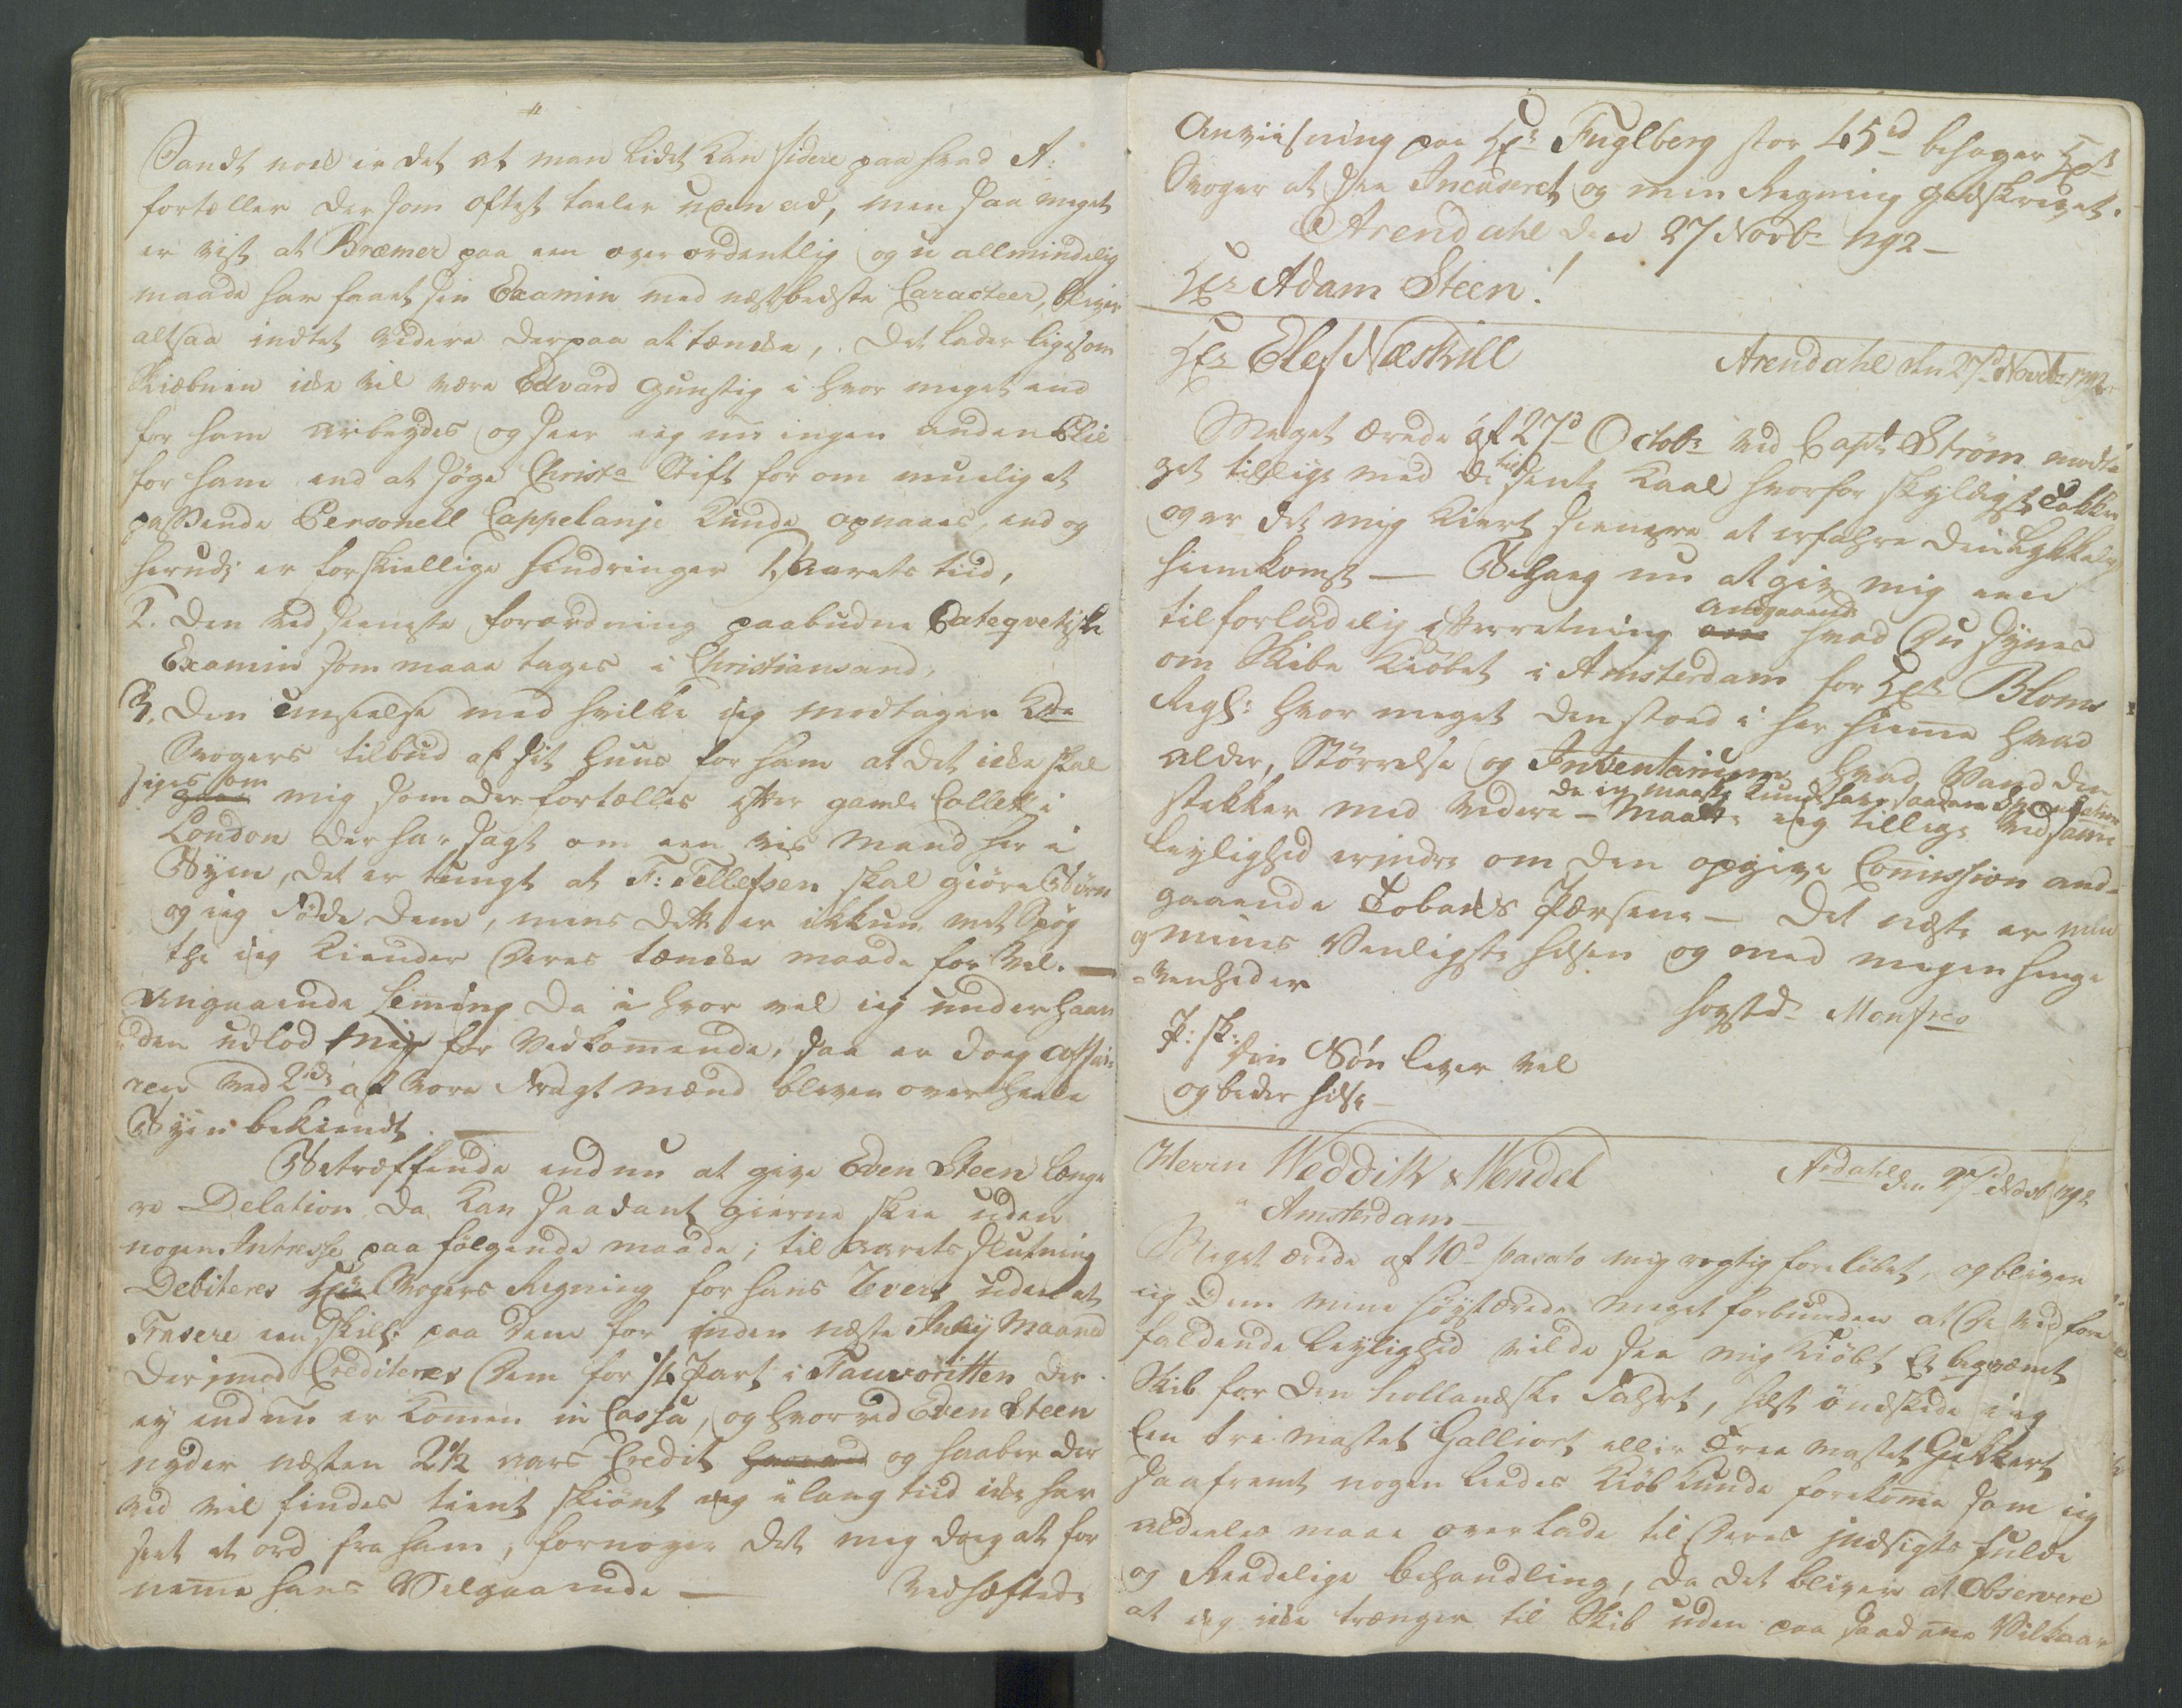 Sandt nok er det at man lidet kan sidere paa hvad A:
fortæller der som oftest taeler upen ad, men saa meget
er vist at Bræmer paa een over ordentlig og u allmindelig
maade har faaet sin Examin med næstbedste Caracteer, bliver
altsaa indtet videre derpaa at tæncke, det lader ligesom
Skiæbnen icke vil være Edvard gunstig i hvor meget end
for ham arbeydes og seer ieg nu ingen anden
for ham end at søge Christa Stift for om muelig et
passende Personell Cappelanje kunde opnaaes, end og
herudi er forskiellige hindringer 1, Aarets tiid,
2. den ved seeneste forordning paabudne Categvetiske
Examin som maae tages i Christiansand,
3. den med hvilke ieg modtager Kde
Svogers tilbud af sit huus for ham at det icke skal
siges om
mig som der fortælles efter gamle Collett i
London der har sagt om een vis Mand her i
Byen, det er tungt at F: Tellefsen skal giøre Børn
og ieg føde dem, mens dette er ikkun mit Spøg
thi ieg kiender Deres tæncke maade for vel. —
Angaaende Leming da i hvor vel ieg under haan
den udlod mig for Vedkomende, saa er dog affai-
ren ved 2de af vore Fragt mænd bleven over heele
Byen bekiendt. —
Betræffende endnu at give Even Steen længe
re Delation da kan saadant gierne skee uden
nogen Intresse paa følgende maade; til aarets slutning
Debiteres Hr Svogers Regning for hans Tevert uden at
Trasere een skill: paa dem for inden næste July Maaned
derimod Crediteres Dem for 1/16 Part i Fauvoritten der
ey endnu er komen in Cassa, og hvorved Even Steen
nyder næsten 2½ aars Credit hvorved og haaber der
ved vil findes tient skiønt ieg i lang tiid icke har
seet et ord fra ham, fornøyer det mig dog at for
neme hans Velgaaende — Vedhæftede
Anviisning paa Hr Fuglberg stor 45rd behager Hr
Svoger at see Incaseret og min Regning godskrevet.
Arendahl den 27 Novbr 1792 —
Hr Adam Steen!
Hr Elef Næskill Arendahl den 27d Novbr 1792
Meget ærede af 27d Octobr ved Capt Strøm modta
get tillige med de til sendte Kaal hvorfor skyldigst takker
og er det mig kiert seenere at erfahre din lykkelig
hiemkomst — Behaag nu at giv mig een
tilforladelig efterretning angaaende hvad Du synes
om Skibe kiøbet i Amsterdam for Hr Bloms
Regl: hvor meget den stoed i her hieme hvad
alder, Størrelse og Inventarium, hvad vand den
stekker med videre — da ieg maaske kunde have saadan Speculation
Maatte ieg tillige ved same
leylighed erindre om den opgive Comission and-
gaaende Tobaks Pærsene — Det næste er min
og mines Venligste hilsen og med megen henge
-venhed er
horsted Monfreo
P: sk:
din Søn lever vel
og beder hilse —
Herrn Weddik & Wendel Ardahl den 27d Novbr 1792
a Amsterdam —
Meget ærede af 10d pasato mig rigtig foreløbet, og bliver
ieg Dem mine høystærede meget forbunden at De ved fore
faldende leylighed vilde see mig kiøbt Et beqvæmt
Skib for den hollandske Fahrt, helst ønskede ieg
Een tre mastet Galliort eller Tree mastet Hukkert
saafremt nogen leedes kiøb kunde forekome som ieg
aldeeles maae overlade til Deres indsigts fulde
og Reedelige behandling, da det bliver at Observere
at ieg icke trænger til Skib uden paa saadanne Vilkaar